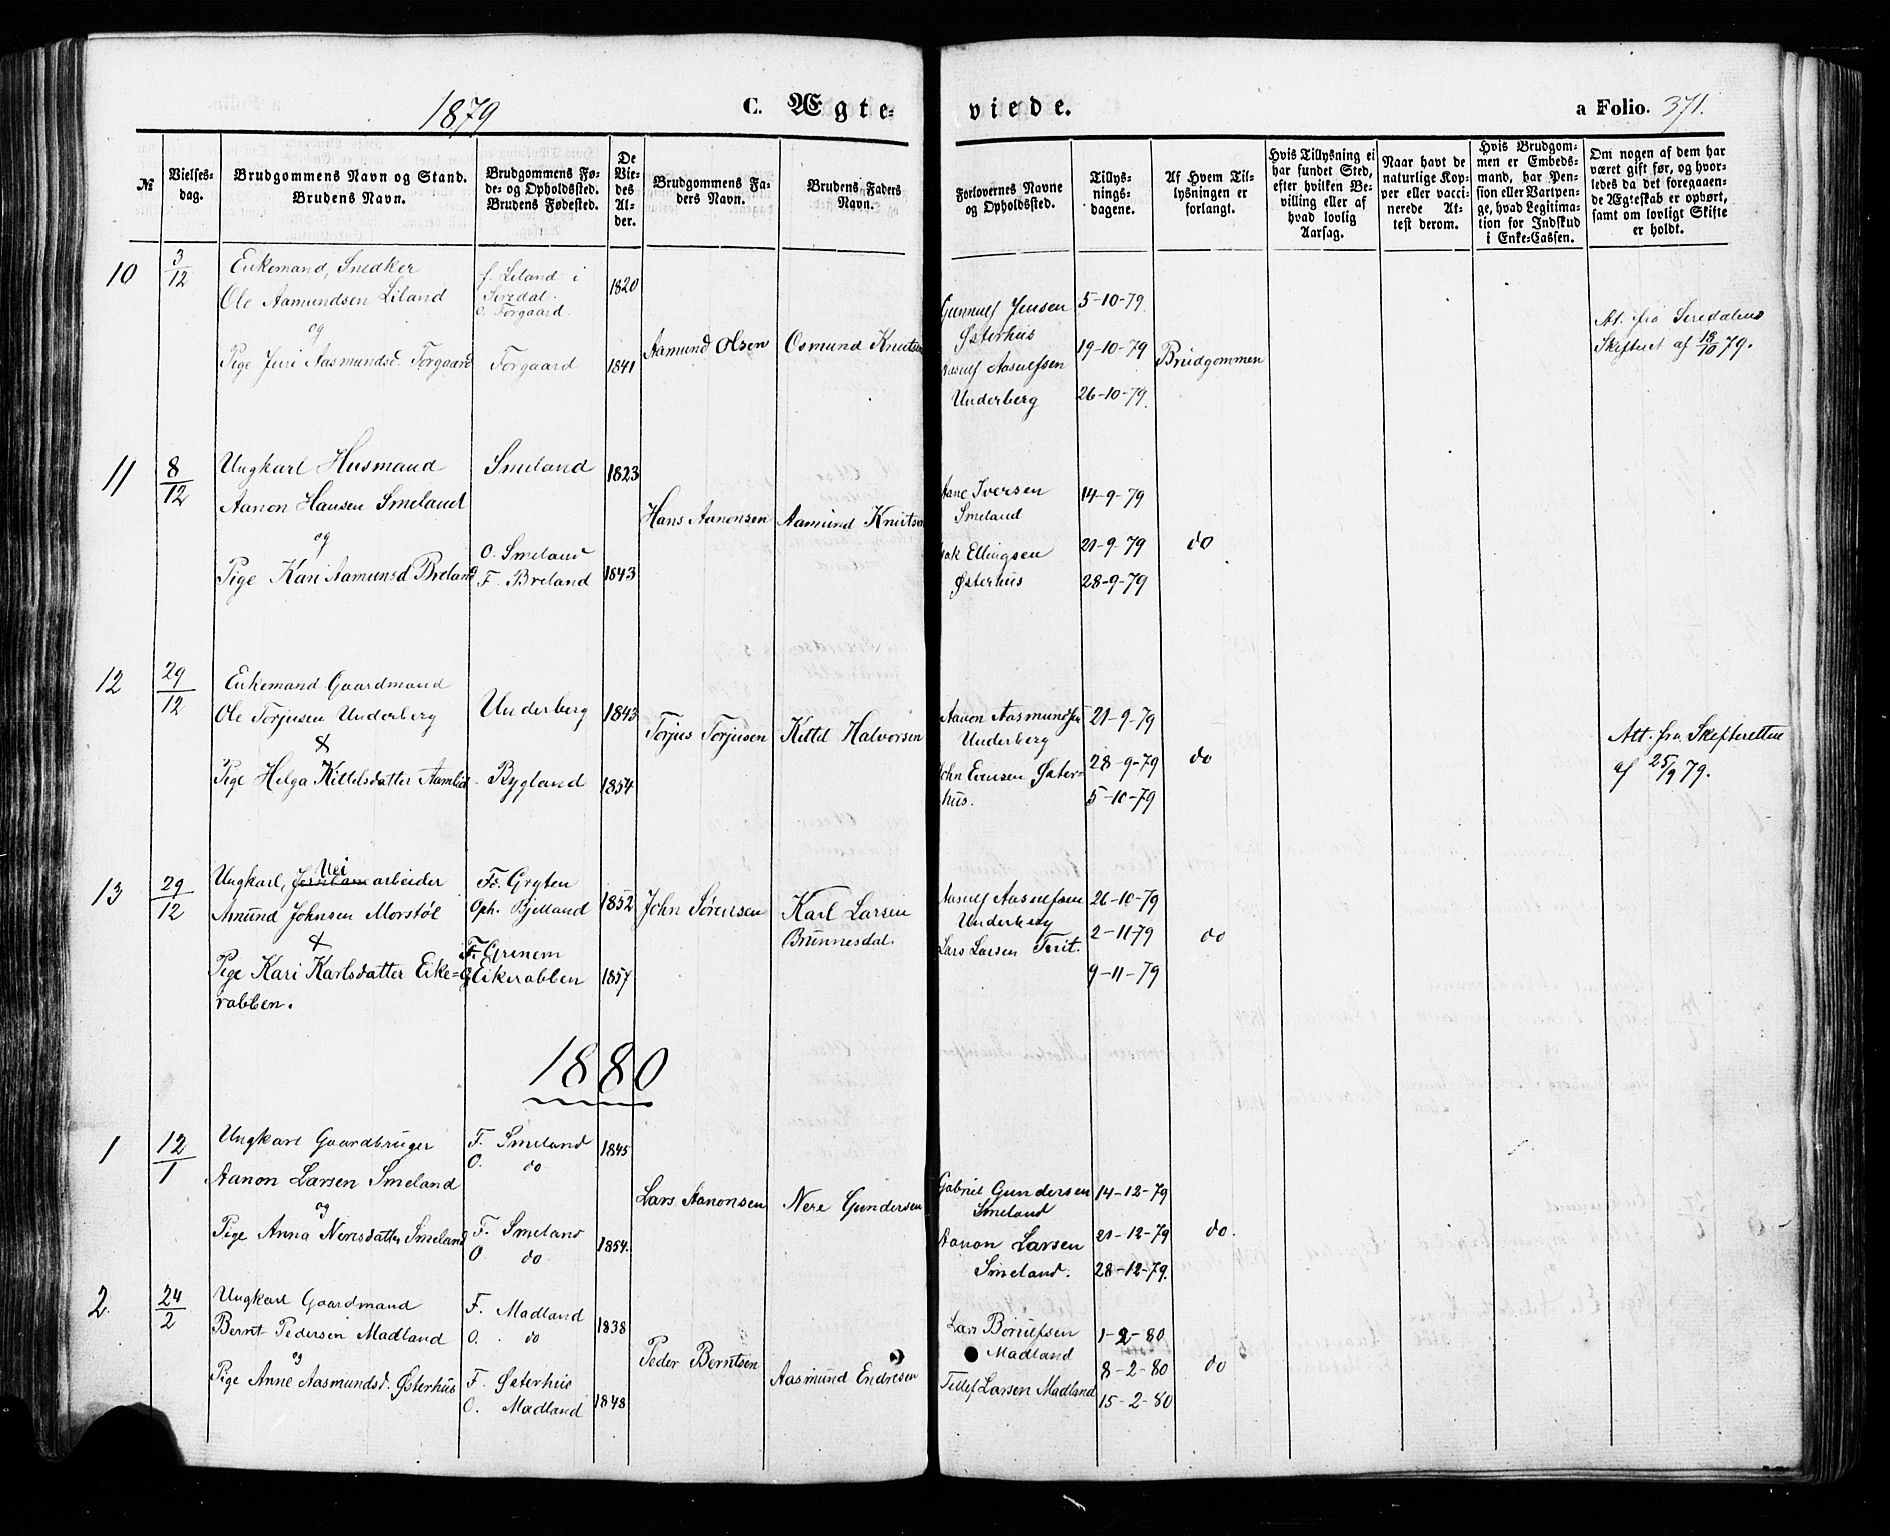 1879 C. Ægteviede. a Folio. 371.
№
Vielsesdag.
Brudgommens Navn og Stand.
Brudens Navn.
Brudgommens Føde- og Opholdssted.
Brudens Fødested.
De Viedes Alder.
Brudgommens Faders Navn.
Brudens Faders Navn.
Forlovernes Navne og Opholdssted.
Tillysningsdagene.
Af Hvem Tillysningen er forlangt.
Hvis Tillysning ei har fundet Sted, efter hvilken Bevilling eller af hvad lovlig Aarsag.
Naar havt de naturlige Kopper eller vaccinerede Attest derom.
Hvis Brudgommen er Embedsmand, har Pension eller Vartpenge, hvad Legitimation for Indskud i Enke-Cassen.
Om nogen af dem har været gift før, og hvorledes da det foregaaende Ægteskab er ophørt, samt om lovligt Skifte er holdt.
10 3/12 Enkemand, Snedker
Ole Aamundsen Liland
og
Pige Juri Aasmundsd. Forgaard
f. Liland i
Siredal.
o. Forgaard.
Forgaard
1820
1841
Aamund Olsen
Osmund Knutsen
Gunnulf Jensen
Østerhus
Aasulf Aasulfsen
Underberg
5-10-79
19-10-79
26-10-79
Brudgommen
At. fra Siredalens
Skifteret af 13/10 79.
11 8/12 Ungkarl Husmand
Aanon Hansen Smeland
og
Pige Kari Aamunsd Breland
Smeland
O. Smeland
F. Breland
1823
1843
Hans Aanonsen
Aamund Knutsen
Aane Iversen
Smeland
Ellingsen
Østerhus
14-9-79
21-9-79
28-9-79
do
12 29/12 Enkemand Gaardmand
Ole Torjusen Underberg
&
Pige Helga Kittelsdatter Aamlid
Underberg
Bygland
1843
1854
Torjus Torjusen
Kittil Halvorsen
Aanon Aasmundsen
Underberg
John Evensen Østerhus.
21-9-79
28-9-79
5-10-79
do
Att. fra Skefteretten
af 25/9 79.
13 29/12 Ungkarl, Vei arbeider
Amund Johnsen Morstøl
&
Pige Kari Karlsdatter Eikerabben.
F. Gryten
Oph. Bjelland
F. Grenem
O. Eikerabben
1852
1857
John Sørensen
Karl Larsen
Brunnesdal.
Aasulf Aasulfsen
Underberg
Lars Larsen Tveit.
26-10-79
2-11-79
9-11-79
do
1880
1 12/1 Ungkarl Gaardbruger
Aanon Larsen Smeland
og
Pige Anna Neresdatter Smeland
F. Smeland
O. do
F. Smeland
O. do
1845
1854.
Lars Aanonsen
Nere Gundersen
Gabriel Gundersen
Smeland
Aanon Larsen
Smeland.
14-12-79
21-12-79
28-12-79.
do.
2. 24/2 Ungkarl Gaardmand
Bernt Pedersen Madland
og
Pige Anne Aasmundsd. Østerhus
F. Madland
O. do
F. Østerhus
O. Madland
1838
1848
Peder Berntsen
Aasmund Endresen
Lars Børulfsen
Madland
Tellef Larsen Madland
1-2-80
8-2-80
15-2-80
do